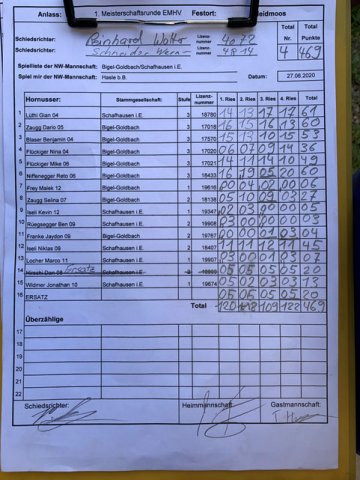 Anlass: 1. Meisterschaftsrunde EMHV. Festort: Heidmoos
Schiedsrichter: Reinhard Lizenz-nummer 4072 Total Nr. Total Punkte
Schiedsrichter: Schneider Lizenz-nummer 4814 4 469
Spielliste der NW-Mannschaft: Bigel-Goldbach/Schafhausen i.E.
Spiel mir der NW-Mannschaft: Hasle b.B. Datum: 27.06.2020
Hornusser: Stammgesellschaft: Stufe Lizenz-nummer 1. Ries 2. Ries 3. Ries 4. Ries Total
1 Lüthi Gian 04 Schafhausen i.E. 3 18780 14 13 17 17 61
2 Zaugg Dario 05 Bigel-Goldbach 3 17018 16 15 16 13 60
3 Blaser Benjamin 04 Bigel-Goldbach 3 15 13 10 15 53
4 Flückiger Nina 04 Bigel-Goldbach 3 17020 06 07 09 14 36
5 Flückiger Mike 06 Bigel-Goldbach 3 17021 14 11 14 10 49
6 Niffenegger Reto 05 Bigel-Goldbach 3 18433 16 19 05 20 60
7 Frey Malek 12 Bigel-Goldbach 1 19616 00 04 02 00 06
8 Zaugg Selina 07 Bigel-Goldbach 2 18138 05 10 09 03 27
9 Iseli Kevin 12 Schafhausen i.E. 1 19347 02 03 00 00 05
10 Rüegsegger Ben 09 Schafhausen i.E. 2 03 00 00 00 03
11 Franke Jaydon 09 Bigel-Goldbach 2 19767 00 00 01 03 04
12 Iseli Niklas 09 Schafhausen i.E. 2 18407 11 11 12 11 45
13 Locher Marco 11 Schafhausen i.E. 1 03 00 01 03 07
14 Hirschi Dan 08 Ersatz Schafhausen i.E. 05 05 05 05 20
15 Widmer Jonathan 10 Schafhausen i.E. 1 19674 05 02 03 03 13
16 ERSATZ 05 05 05 05 20
Total 120 118 109 122 469
Überzählige
17
18
19
20
21
22
Schiedsrichter: Heimmannschaft: Gastmannschaft: